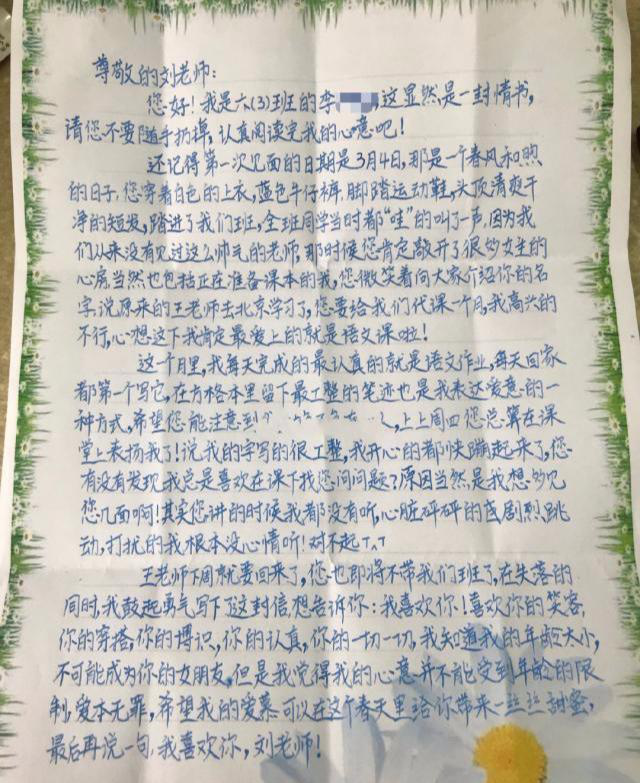 尊敬的刘老师：
您好！我是六(3)班的李，这显然是一封情书，
请您不要随手扔掉，认真阅读完我的心意吧！
还记得第一次见面的日期是3月4日，那是一个春风和煦
的日子，您穿着白色的上衣，蓝色牛仔裤，脚踏运动鞋，头顶清爽干
净的短发，踏进了我们班，全班同学当时都“哇”的叫了一声，因为我
们从来没有见过这么帅气的老师，那时候您肯定敲开了很多女生的
心房当然也包括正在准备课本的我，您微笑着向大家介绍你的名
字，说原来的王老师去北京学习了，您要给我们代课一个月，我高兴的
不行，心想这下我肯定最爱上的就是语文课啦！
这个月里，我每天完成的最认真的就是语文作业，每天回家
都第一个写它，在方格本里留下最工整的笔迹也是我表达爱意的一
种方式，希望您能注意到，上上周四您总算在课
堂上表扬我了！说我的字写的很工整，我开心的都快蹦起来了，您
有没有发现我总是喜欢在课下找您问问题？原因当然是我想多见
您几面啊！其实您讲的时候我都没有听，心脏砰砰的在剧烈跳
动，打扰的我根本没心情听！对不起T^T
王老师下周就要回来了，您也即将不带我们班了，在失落的
同时，我鼓起勇气写下了这封信想告诉你：我喜欢你！喜欢你的笑容，
你的穿搭，你的博识，你的认真，你的一切一切，我知道我的年龄太小，
不可能成为你的女朋友，但是我觉得我的心意并不能受到年龄的限
制，爱本无罪，希望我的爱慕可以在这个春天里给你带来一丝丝甜蜜，
最后再说一句，我喜欢你，刘老师！